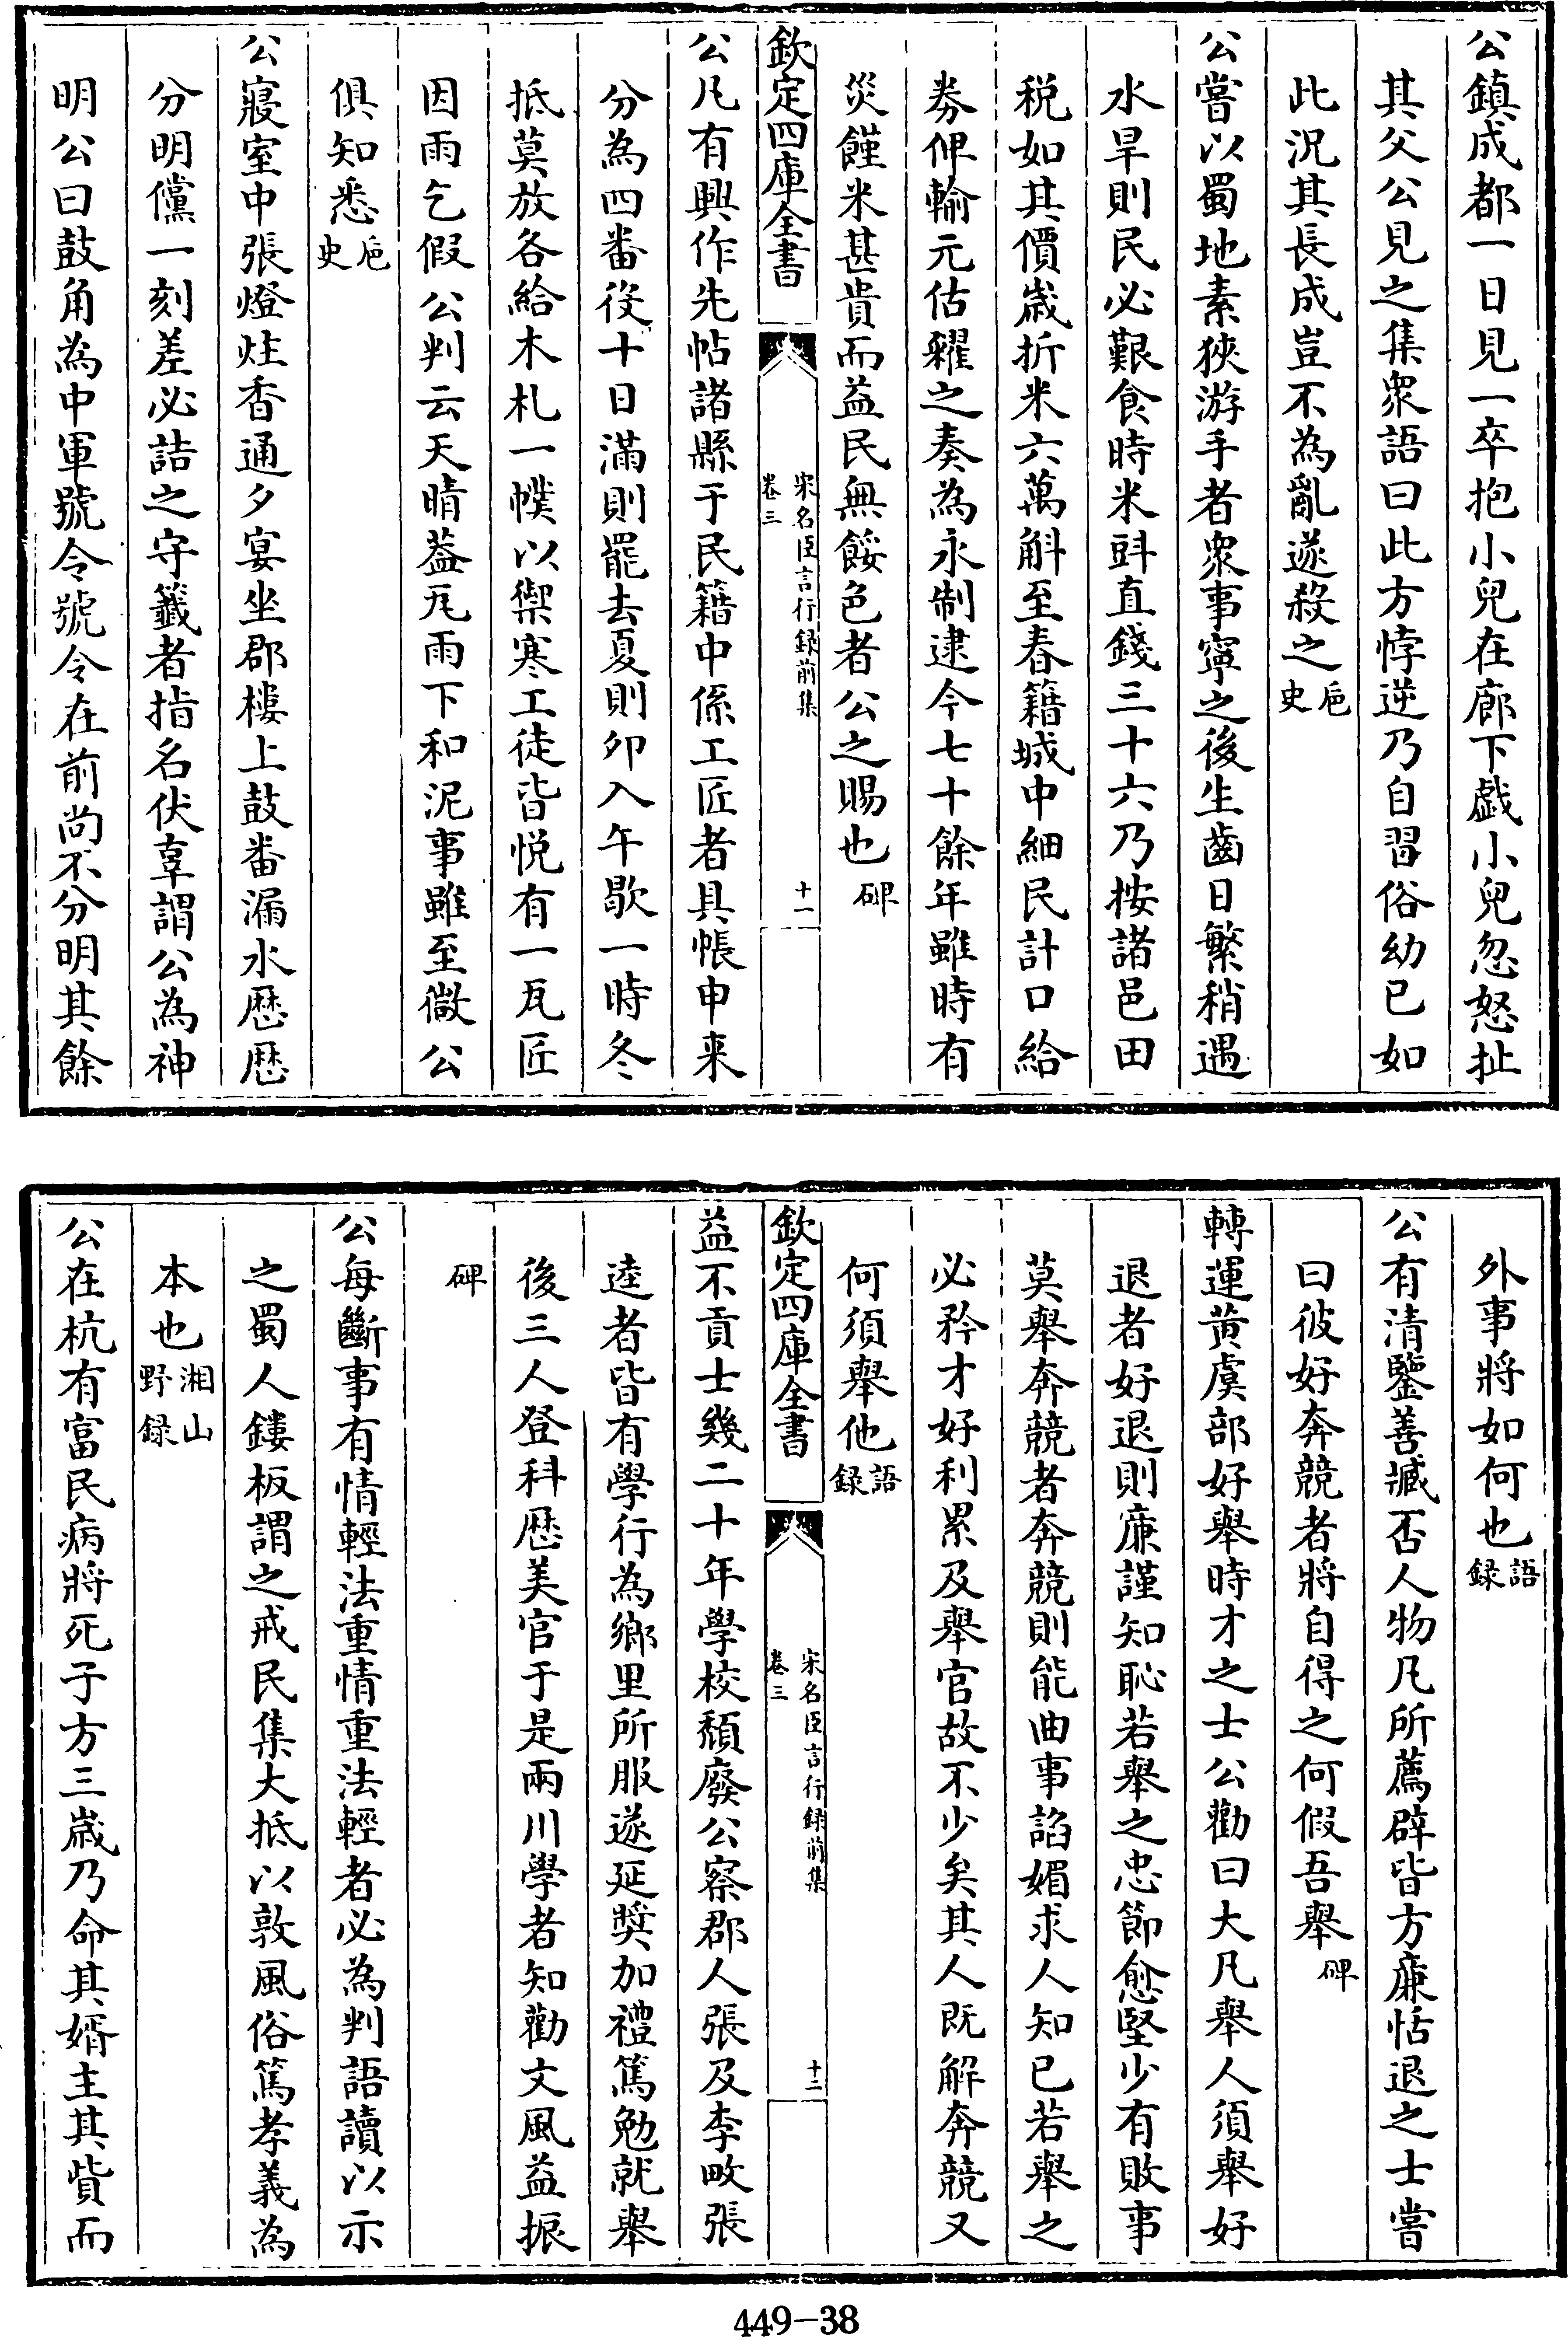 公鎮成都一日見一卒抱小兒在廊下戲小兒忽怒扯
其父公見之集衆語曰此方悖逆乃自習俗幼已如
此況其長成豈不為亂遂殺之巵史
公嘗以蜀地素狹游手者衆事寧之後生齒日繁稍遇
水旱則民必艱食時米㪷直錢三十六乃按諸邑田
税如其價嵗折米六萬斛至春籍城中細民計口給
劵俾輸元估糴之奏為永制逮今七十餘年雖時有
災饉米甚貴而益民無餒色者公之賜也碑
欽定四庫全書
宋名臣言行録前集
卷三
十一
公凡有興作先帖諸縣于民籍中係工匠者具帳申来
分為四番役十日滿則罷去夏則卯入午歇一時冬
抵莫放各給木札一幞以禦寒工徒皆悦有一瓦匠
因雨乞假公判云天晴葢瓦雨下和泥事雖至微公
俱知悉巵史
公寢室中張燈炷香通夕宴坐郡樓上鼓番漏水歴歴
分明儻一刻差必詰之守籤者指名伏辜謂公為神
明公曰鼓角為中軍號令號令在前尚不分明其餘
外事將如何也語録
公有清鑒善臧否人物凡所薦辟皆方廉恬退之士嘗
曰彼好奔競者將自得之何假吾舉碑
轉運黄虞部好舉時才之士公勸曰大凡舉人須舉好
退者好退則廉謹知恥若舉之忠節愈堅少有敗事
莫舉奔競者奔競則能曲事諂媚求人知已若舉之
必矜才好利累及舉官故不少矣其人既解奔競又
何須舉他語録
欽定四庫全書
宋名臣言行録前集
卷三
十二
益不貢士幾二十年學校頽廢公察郡人張及李畋張
逵者皆有學行為鄉里所服遂延奬加禮篤勉就舉
後三人登科歴美官于是兩川學者知勸文風益振
碑
公每斷事有情輕法重情重法輕者必為判語讀以示
之蜀人鏤板謂之戒民集大抵以敦風俗篤孝義為
本也湘山野録
公在杭有富民病將死子方三嵗乃命其婿主其貲而
449-38